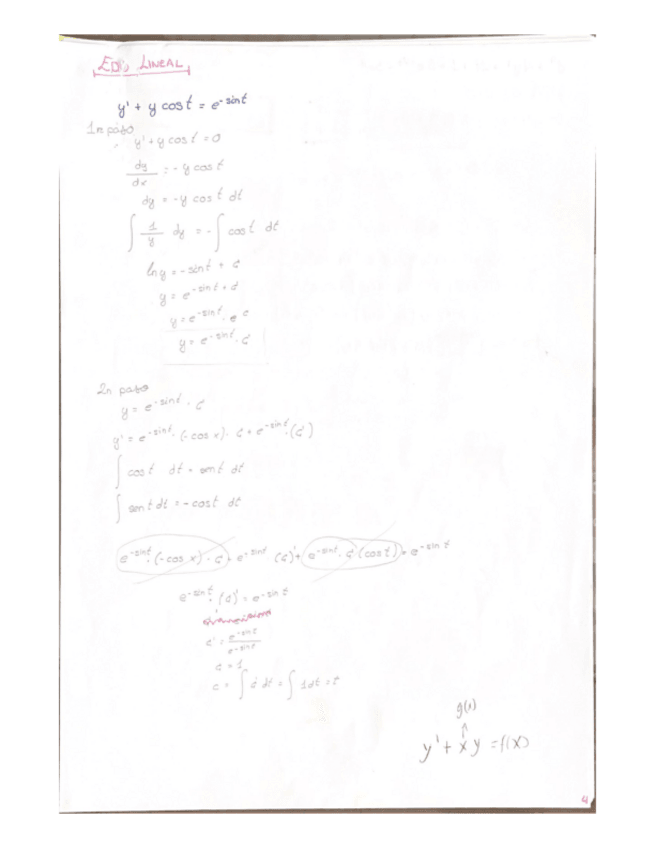 EDO LINEAL
y' + y cos t = e^-sin t
1n paso
y' + y cos t = 0
dy/dx = - y cos t
dy = -y cos t dt
∫ 1/y dy = - ∫ cos t dt
ln y = - sin t + c
y = e^-sin t + c
y = e^-sin t · e^c
y = e^-sin t · c
2n paso
y = e^-sin t · c
y' = e^-sin t · (-cos x) · c + e^-sin t · (c')
∫ cos t dt = sin t dt
∫ sin t dt = - cos t dt
e^-sin t · (-cos x) · c + e^-sin t (c)' + e^-sin t · c (cos t) = e^-sin t
e^-sin t · (c)' = e^-sin t
c' = e^-sin t / e^-sin t
c = 1
c = ∫ c' dt = ∫ 1 dt = t
g(x)
↑
y' + x y = f(x)
4